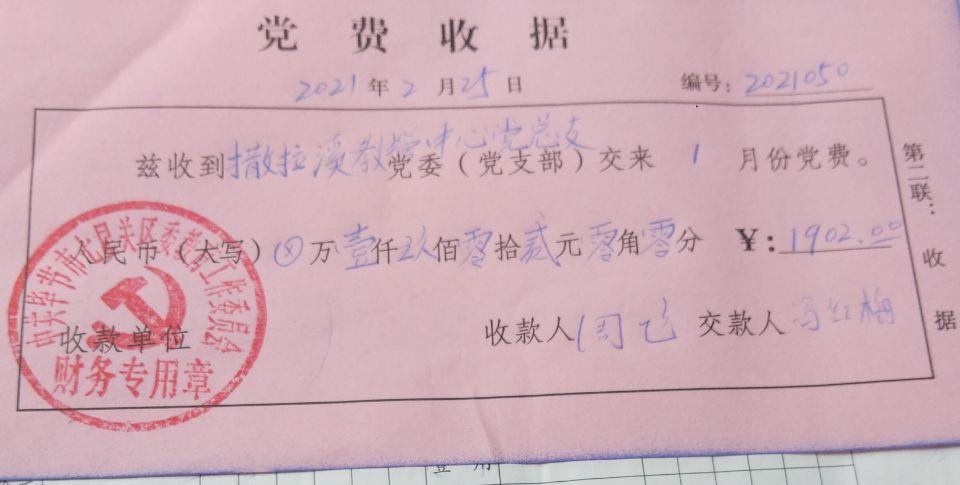 党费收据
2021年2月25日 编号：2021050
兹收到撒拉溪教管中心党总支党委（党支部）交来1月份党费。
人民币（大写）⊗万壹仟玖佰零拾贰元零角零分 ￥：1902.00
收款单位 收款人 周飞 交款人 冯红梅
第二联：收据
中共毕节市七星关区委教育工作委员会
财务专用章